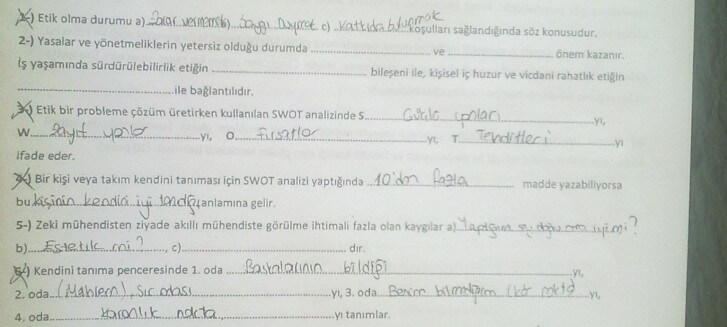 1-) Etik olma durumu a) Zarar vermemek b) Saygı duymak c) Katkıda bulunmak koşulları sağlandığında söz konusudur.
2-) Yasalar ve yönetmeliklerin yetersiz olduğu durumda ........ ve ........ önem kazanır.
İş yaşamında sürdürülebilirlik etiğin ........ bileşeni ile, kişisel iç huzur ve vicdani rahatlık etiğin
........ ile bağlantılıdır.
3-) Etik bir probleme çözüm üretirken kullanılan SWOT analizinde S.... Güçlü yönleri ....yı,
W.... Zayıf yönler ....yı, O.... Fırsatlar ....yı, T Tehditleri ....yı
ifade eder.
4-) Bir kişi veya takım kendini tanıması için SWOT analizi yaptığında 10'dan fazla ........ madde yazabiliyorsa
bu kişinin kendini iyi tanıdığı anlamına gelir.
5-) Zeki mühendisten ziyade akıllı mühendiste görülme ihtimali fazla olan kaygılar a) Yaptığım şey doğru mu iyi mi?
b).... Estetik mi? ...., c)........ dır.
6-) Kendini tanıma penceresinde 1. oda .... Başkalarının bildiği ....yı,
2. oda.. (Mahrem), Sır odası ....yı, 3. oda Benim bilmediğim (kör nokta) ..yı,
4. oda.... Karanlık nokta ....yı tanımlar.